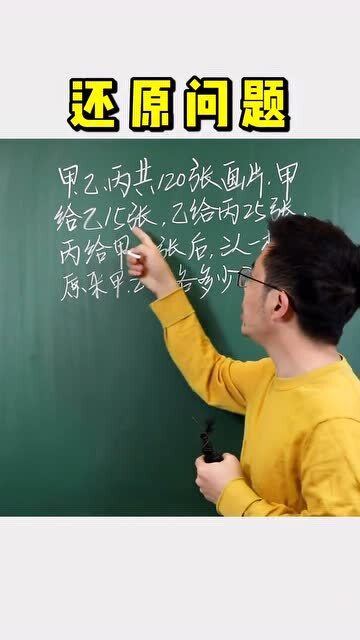 还原问题
甲、乙、丙共120张画片.甲
给乙15张,乙给丙25张,
丙给甲 张后,三人一
原来甲.乙 各多少